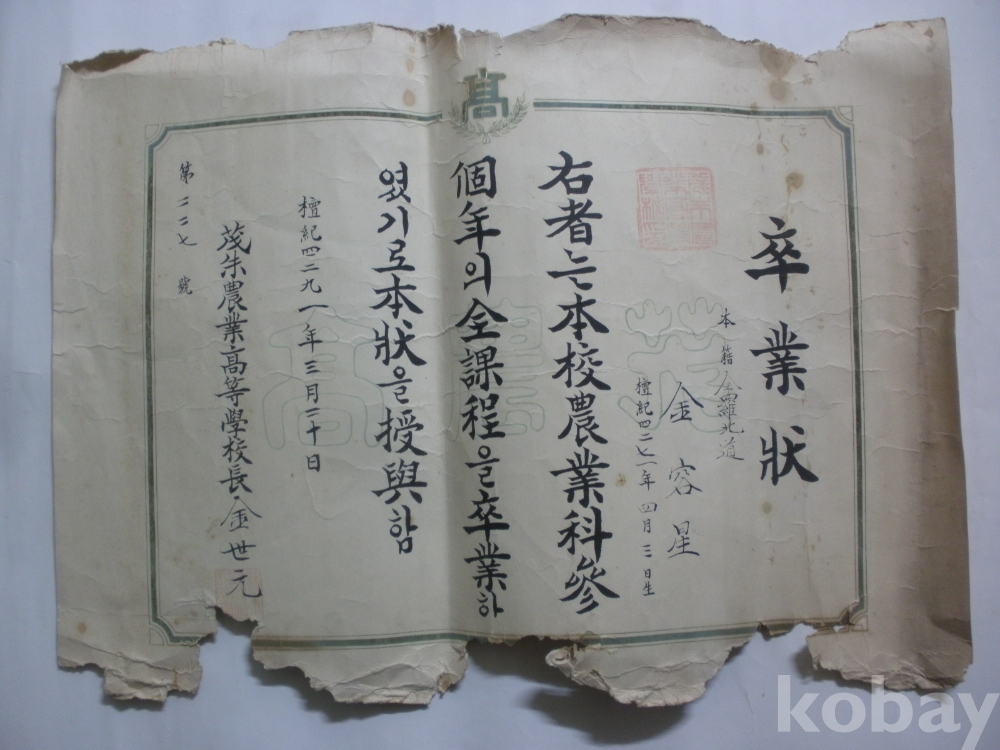 高
卒業狀
本籍 全羅北道
金容星
檀紀四二七一年四月三日生
右者는本校農業科參
個年의全課程을卒業하
였기로本狀을授與함
檀紀四二九一年三月二十日
茂朱農業高等學校長 金世元
第二二七號
茂農高
kobay